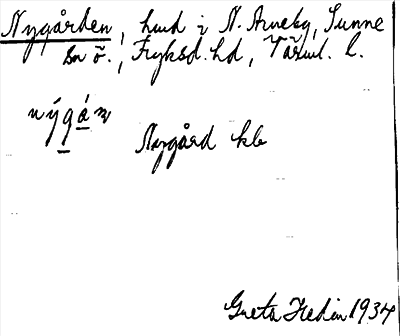 Nygården, hmd i N. Arneby, Sunne
sn ö., Fryksd. hd, Värml. l.
nýgán
Nygård kb
Greta Hedin 1934